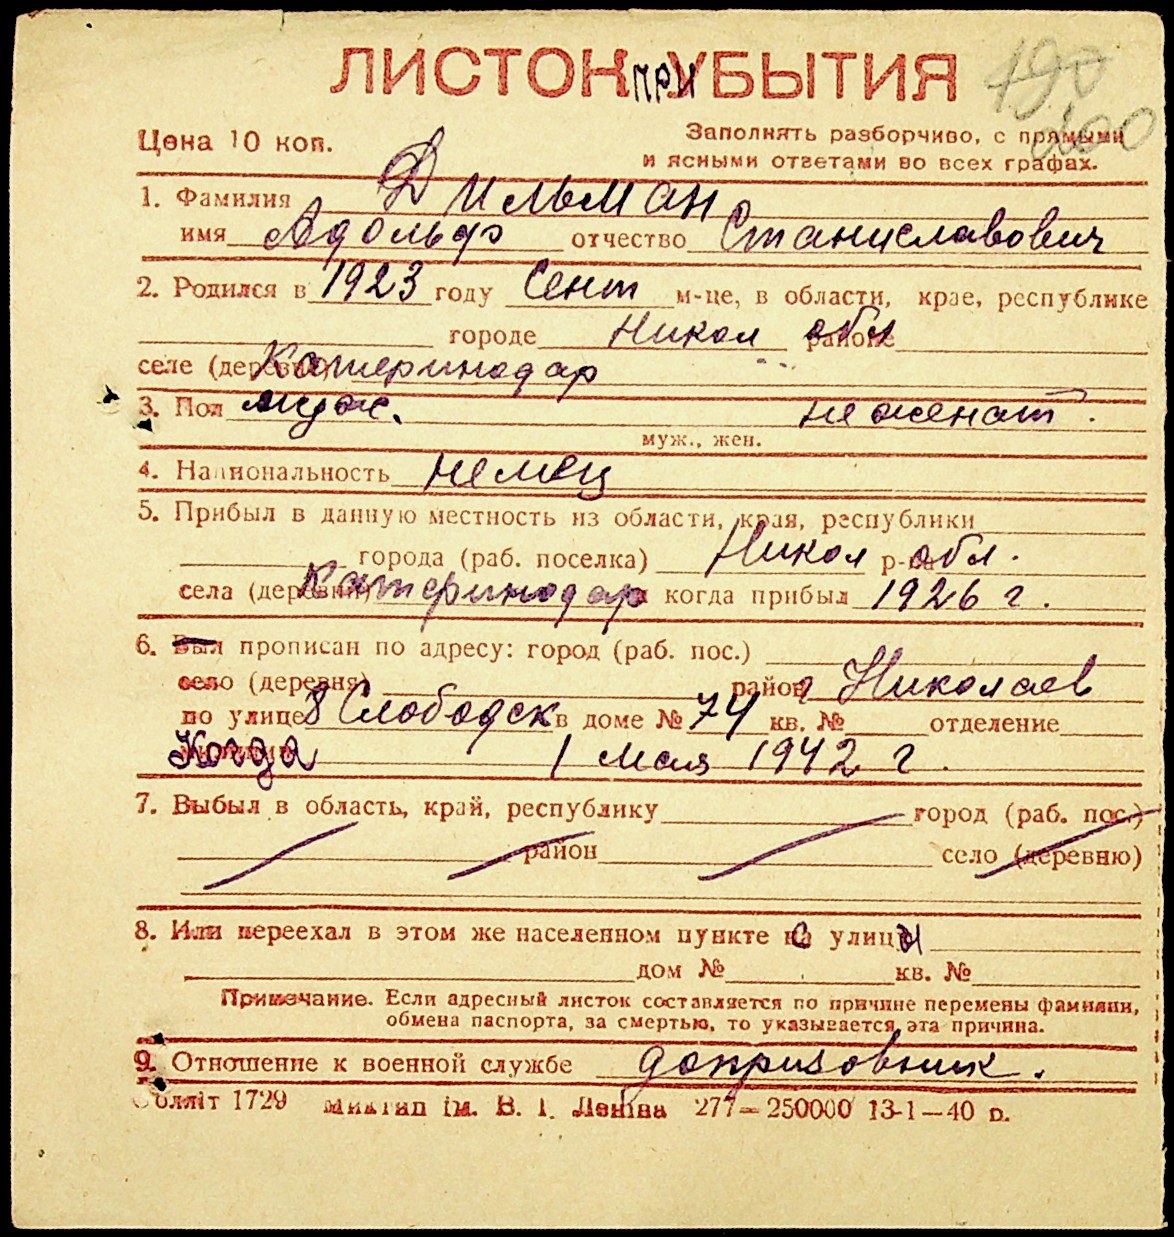 ЛИСТОК ПРИБЫТИЯ
190
200
Цена 10 коп.
Заполнять разборчиво, с прямыми
и ясными ответами во всех графах.
1. Фамилия Дильман
имя Адольф отчество Станиславович
2. Родился в 1923 году Сент м-це, в области, крае, республике
городе Никол обл районе
селе (деревне) Катеринодар
3. Пол муж. не женат.
муж., жен.
4. Национальность немец
5. Прибыл в данную местность из области, края, республики
города (раб. поселка) Никол р-на обл.
села (деревни) Катеринодар и когда прибыл 1926 г.
6. Был прописан по адресу: город (раб. пос.)
село (деревня) район г Николаев
по улице 8 Слободск в доме № 74 кв. № отделение
Когда 1 мая 1942 г.
7. Выбыл в область, край, республику город (раб. пос.)
район село (деревню)
8. Или переехал в этом же населенном пункте с улицы
дом № кв. №
Примечание. Если адресный листок составляется по причине перемены фамилии,
обмена паспорта, за смертью, то указывается эта причина.
9. Отношение к военной службе допризовник.
Обллiт 1729 Миктип iм. В. I. Ленiна 277—250000 13-1—40 р.